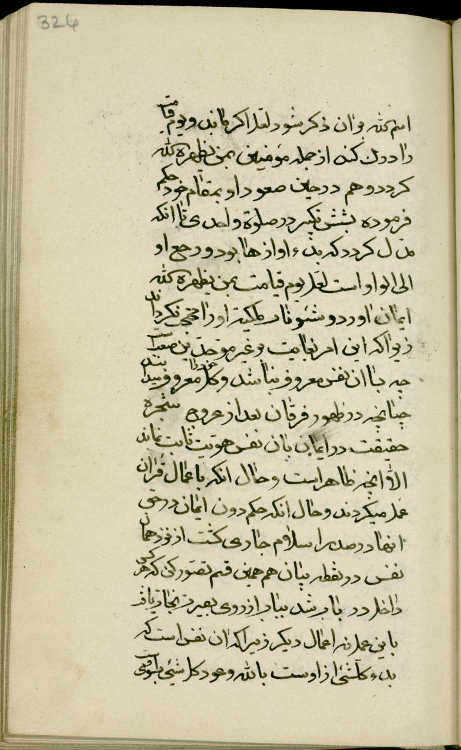 324
اسم الله بر ان ذکر شود لعل اگر ماند و یوم قیامت
را درک کند از جمله مؤمنین بمن یظهره الله
گردد و هم در حین صعود او بمقام خود حکم
فرموده بشش تکبیر در صلوة واحدی تا انکه
مدل گردد که بدء او از ها بود و رجع او
الی الواو است لعل یوم قیامت بمن یظهره الله
ایمان اورد و شئونات ملکیه او را محتجب نگرداند
زیرا که این امر بغایت وغیر موحدین صعب است
چه با ان نفس معروف نباشند و کل معروفند
چنانچه در ظهور فرقان بعد از عروج شجره
حقیقت در ایمان بان نفس هویت ثابت نماند
الا انچه ظاهر است و حال انکه باعمال قران
عمل میکردند و حال انکه حکم دون ایمان در حق
انها در صدر اسلام جاری گشت از نزد همان
نفس در نقطه بیان هم همین قسم تصور کن که هر کس
داخل در بیان شد از روی بصیرت نجات یافت
باین عمل نه اعمال دیگر زیرا که ان نفس است که
بدء کلشئ از اوست بالله و عود کلشئ